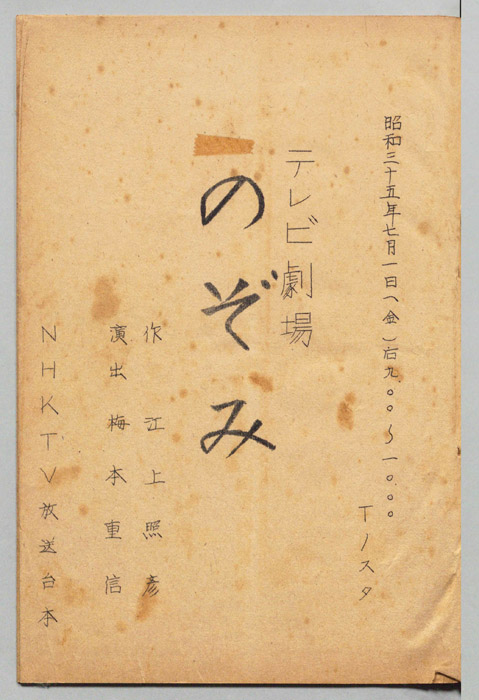 昭和三十五年七月一日(金)后九.〇〇〜一〇.〇〇
T/スタ
テレビ劇場
のぞみ
作 江上照彦
演出 梅本重信
NHKTV放送台本